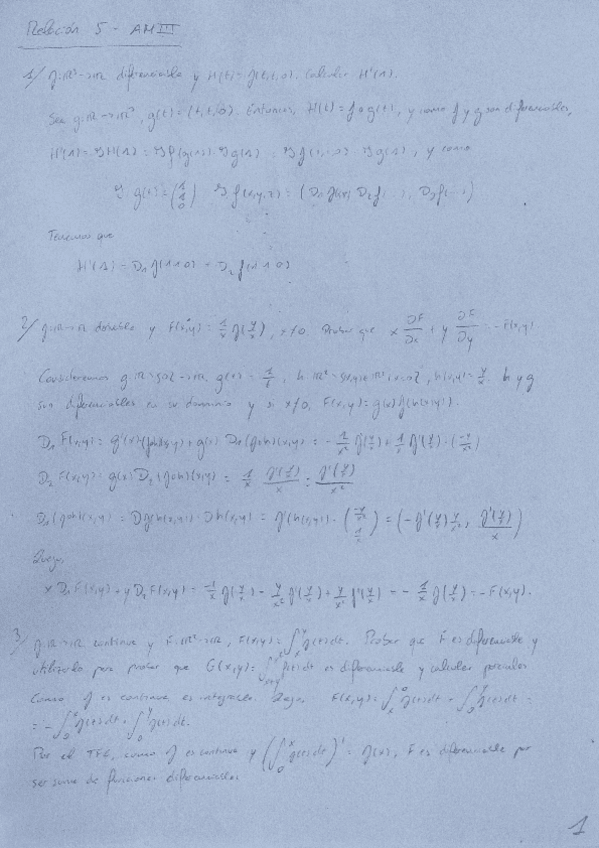 Relación 5 - AM III
1/ f:ℝ³→ℝ diferenciable y H(t)=f(t,t,0). Calcular H'(1).
Sea g:ℝ→ℝ³, g(t)=(t,t,0). Entonces, H(t)=f∘g(t), y como f y g son diferenciables,
H'(1)=JH(1)=Jf(g(1))·Jg(1)= Jf(1,1,0) Jg(1), y como
J g(t)=(1 1 0) Jf(x,y,z)=(D₁f(x,y,z), D₂f(...), D₃f(...))
Tenemos que
H'(1)=D₁f(1,1,0)+D₂f(1,1,0)
2/ f:ℝ→ℝ derivable y F(x,y)=1/x f(y/x), x≠0. Probar que x ∂F/∂x + y ∂F/∂y = -F(x,y)
Consideremos g:ℝ-{0}→ℝ, g(x)=1/x, h(x,y)=y/x. h y g
son diferenciables en su dominio y si x≠0, F(x,y)=g(x)f(h(x,y)).
D₁F(x,y)=g'(x)(f∘h)(x,y)+g(x) D₁(f∘h)(x,y)= -1/x² f(y/x)+1/x f'(y/x)·(-y/x²)
D₂F(x,y)=g(x)D₂(f∘h)(x,y)= 1/x f'(y/x)/x = f'(y/x)/x²
D(f∘h)(x,y)=Df(h(x,y))·Dh(x,y)=f'(h(x,y))·(-y/x² 1/x)=(-f'(y/x)y/x², f'(y/x)/x)
Luego,
x D₁F(x,y)+y D₂F(x,y)= -1/x f(y/x) - y/x² f'(y/x)+ y/x² f'(y/x)= -1/x f(y/x)=-F(x,y).
3/ f:ℝ→ℝ continua y F:ℝ²→ℝ, F(x,y)=∫ₓʸ f(t)dt. Probar que F es diferenciable y
utilizarlo para probar que G(x,y)=∫ f(t)dt es diferenciable y calcular parciales
Como f es continua, es integrable. Luego, F(x,y)=∫ₓ⁰ f(t)dt+∫₀ʸ f(t)dt =
= -∫₀ˣ f(t)dt+∫₀ʸ f(t)dt.
Por el TFC, como f es continua y (∫₀ˣ f(t)dt)'= f(x), F es diferenciable por
ser suma de funciones diferenciables.
1